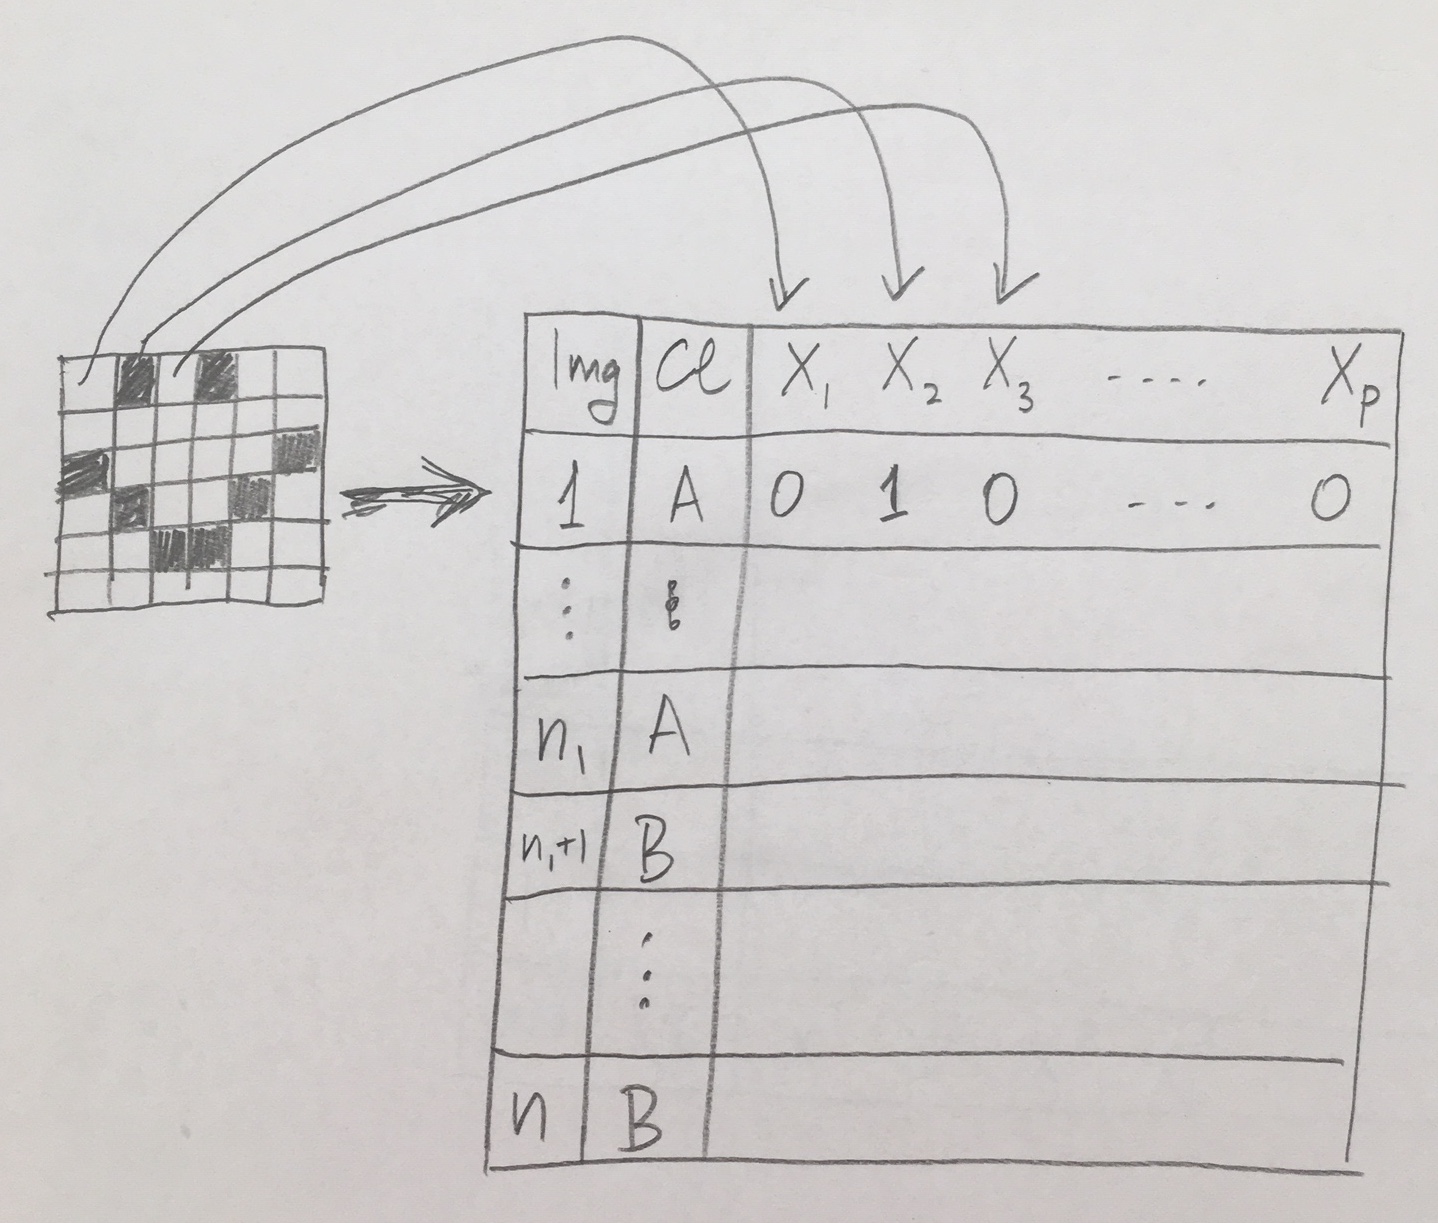 Img Cl X₁ X₂ X₃ .... Xₚ
1 A 0 1 0 ... 0
⋮ ⋮
n₁ A
n₁+1 B
⋮
n B